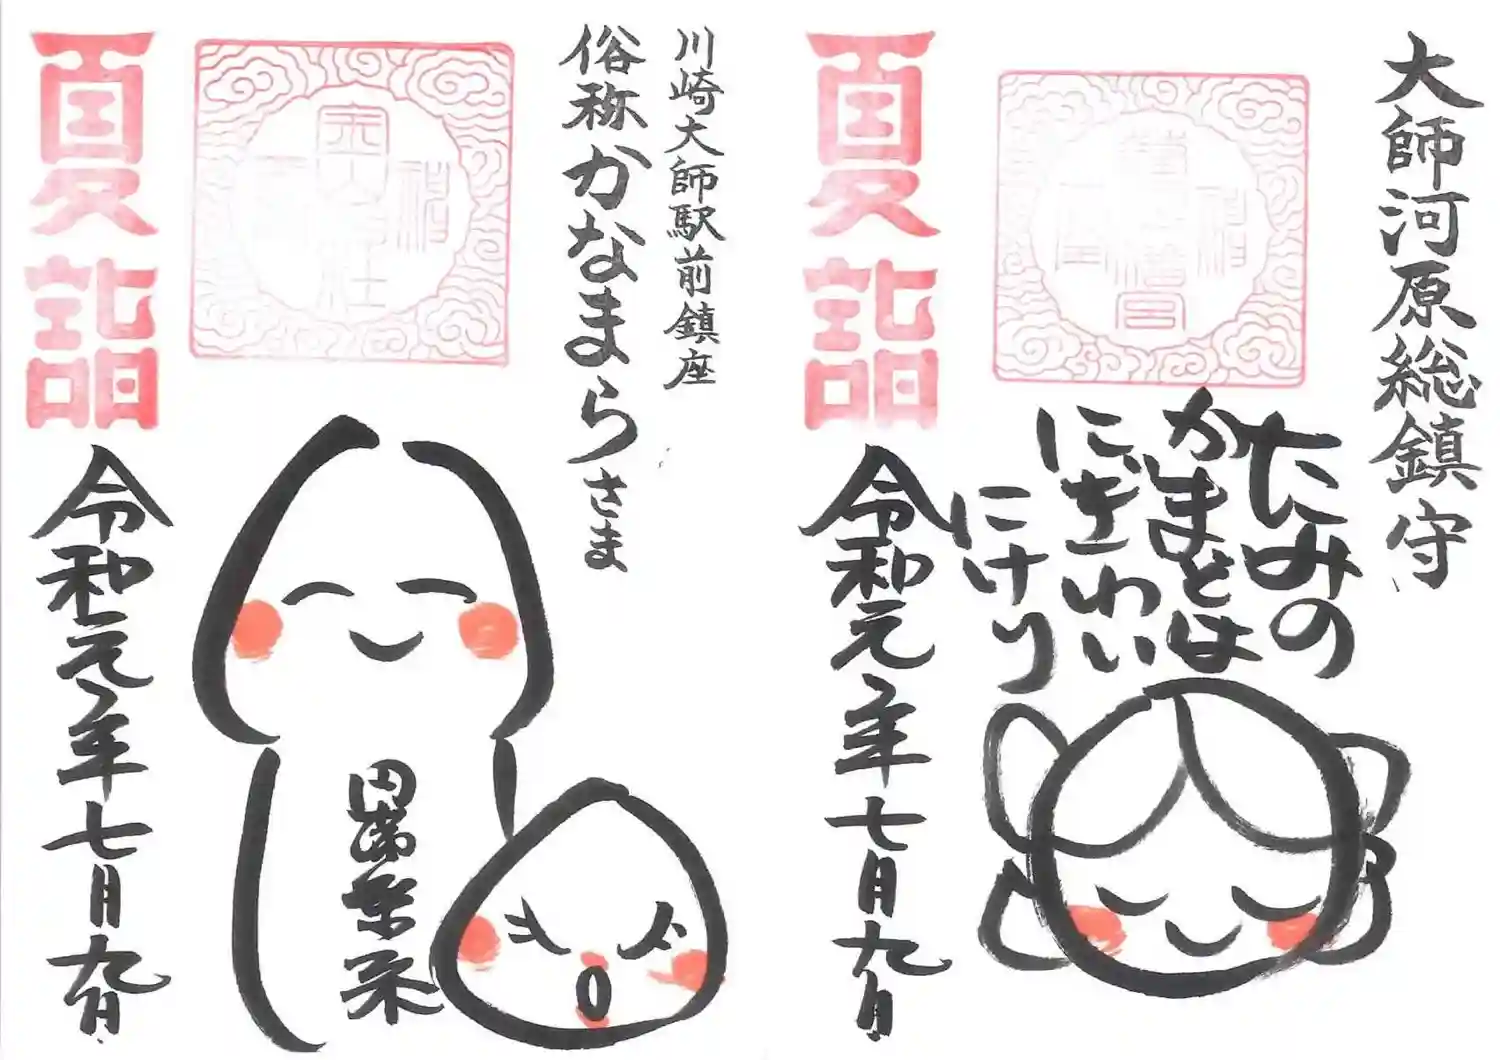 大師河原総鎮守
たみの
かまとは
にぎわい
にけり
夏詣
令和元年七月九日
川崎大師駅前鎮座
俗称かなまらさま
円満
夏詣
令和元年七月九日